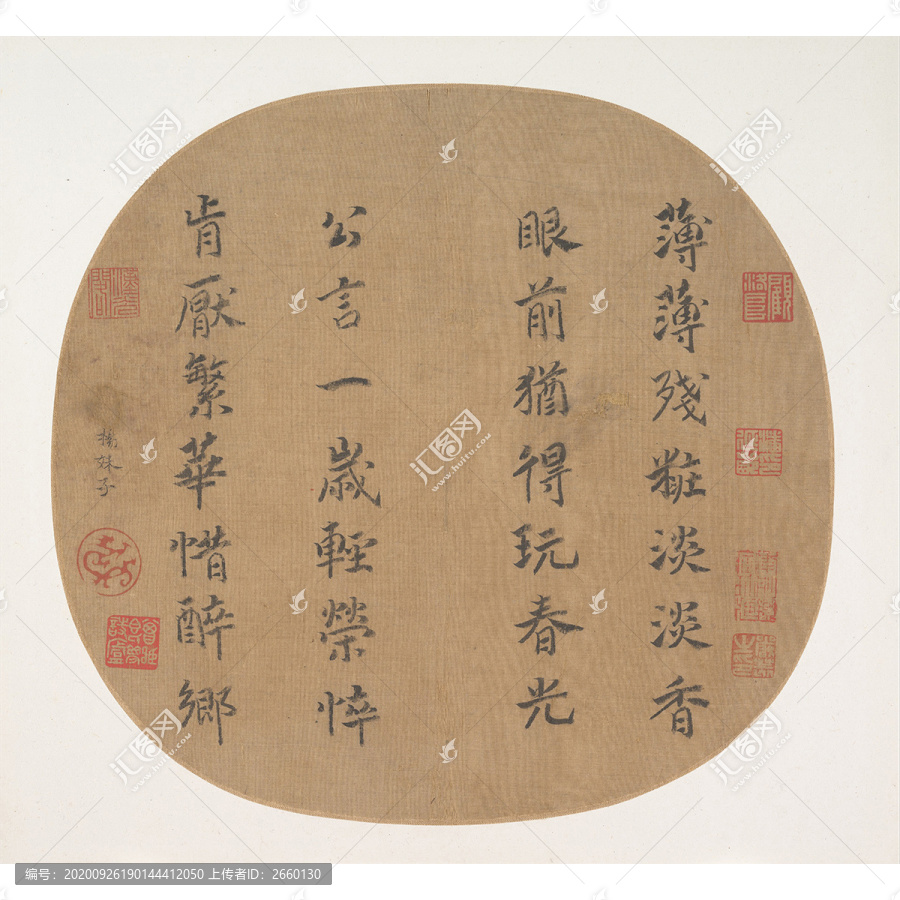 薄薄殘粧淡淡香
眼前猶得玩春光
公言一歲輕榮悴
肯厭繁華惜醉鄉
楊妹子
汇图网
www.huitu.com
编号：20200926190144412050 上传者ID：2660130